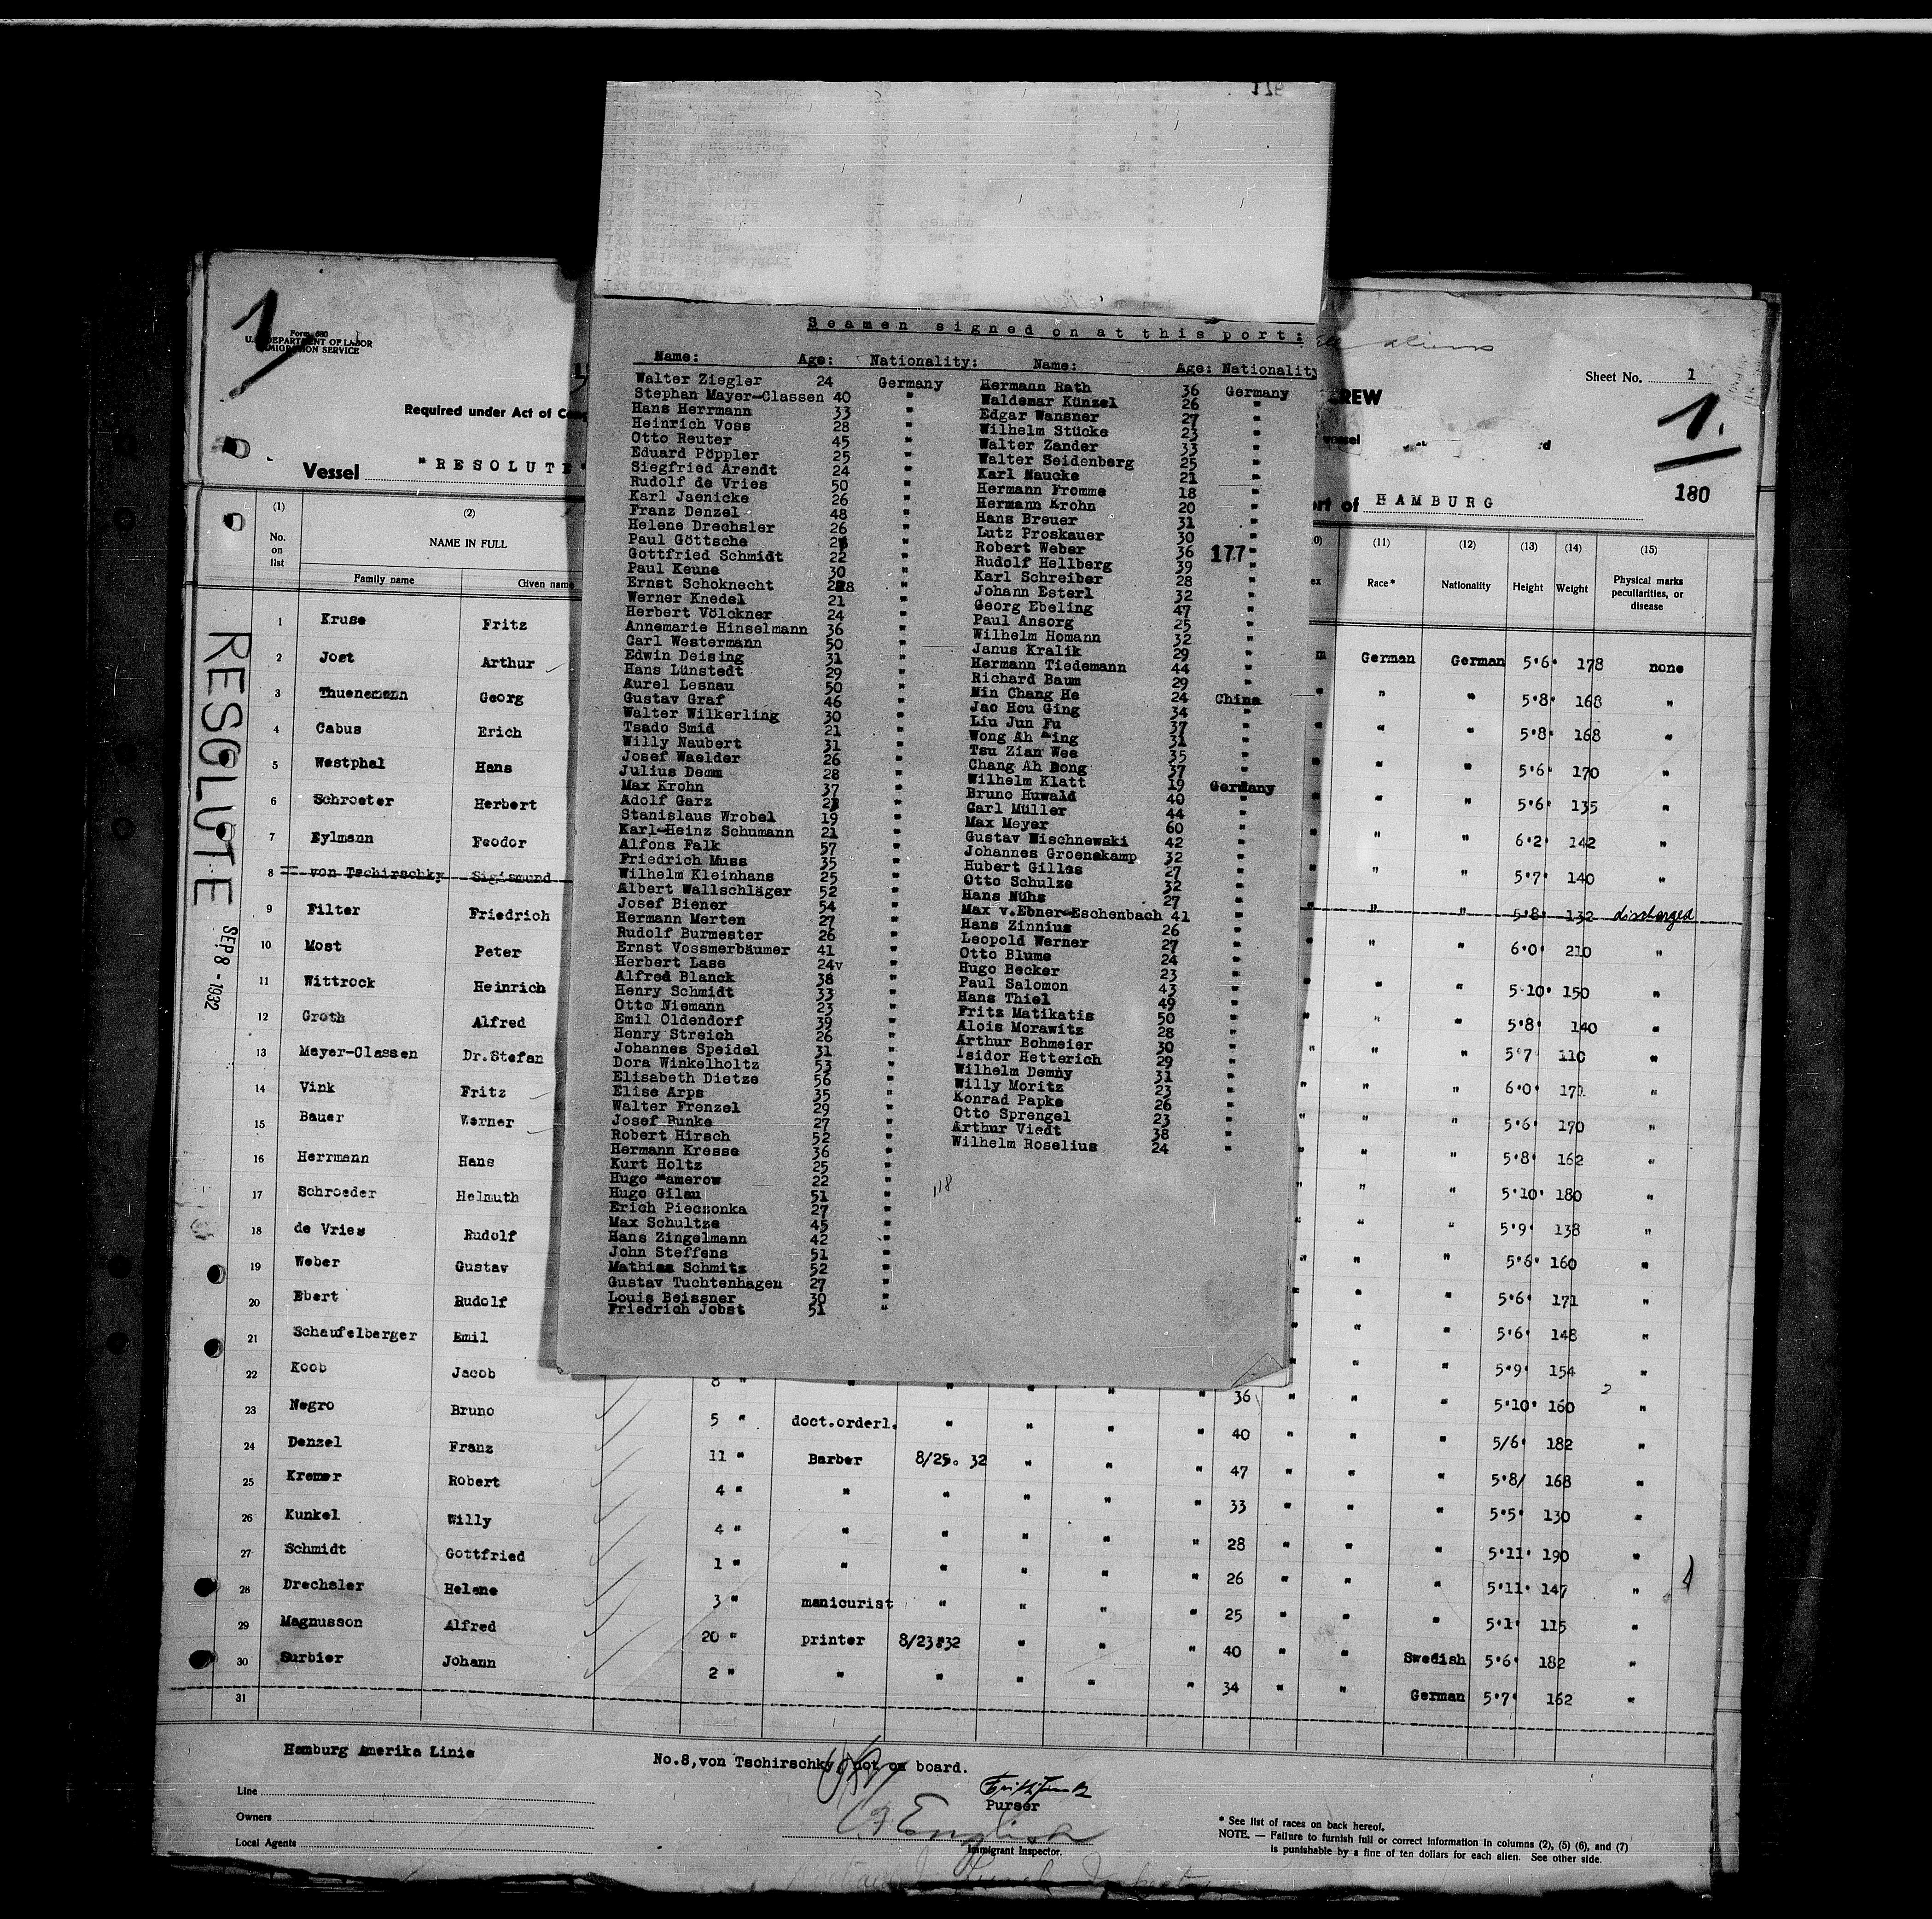 1
Form 680
U.S. DEPARTMENT OF LABOR
IMMIGRATION SERVICE
Sheet No. 1
1.
180
Required under Act of
CREW
Vessel "RESOLUTE"
vessel
Port of HAMBURG
RESOLUTE
SEP 8 - 1932
Seamen signed on at this port:
Name: Age: Nationality: Name: Age: Nationality
Walter Ziegler 24 Germany Hermann Rath 36 Germany
Stephan Mayer-Classen 40 " Waldemar Künzel 26 "
Hans Herrmann 33 " Edgar Wansner 27 "
Heinrich Voss 28 " Wilhelm Stücke 23 "
Otto Reuter 45 " Walter Zander 33 "
Eduard Pöppler 25 " Walter Seidenberg 25 "
Siegfried Arendt 24 " Karl Naucke 21 "
Rudolf de Vries 50 " Hermann Fromme 18 "
Karl Jaenicke 26 " Hermann Krohn 20 "
Franz Denzel 48 " Hans Breuer 31 "
Helene Drechsler 26 " Lutz Proskauer 30 "
Paul Göttsche " Robert Weber 36 177 "
Gottfried Schmidt 22 " Rudolf Hellberg 39 "
Paul Keune 30 " Karl Schreiber 28 "
Ernst Schoknecht 28 " Johann Esterl 32 "
Werner Knedel 21 " Georg Ebeling 47 "
Herbert Völckner 24 " Paul Ansorg 25 "
Annemarie Hinselmann 36 " Wilhelm Homann 32 "
Carl Westermann 50 " Janus Kralik 29 "
Edwin Deising 31 " Hermann Tiedemann 44 "
Hans Lünstedt 29 " Richard Baum 29 "
Aurel Lesnau 50 " Min Chang He 24 China
Gustav Graf 46 " Jao Hou Ging 34 "
Walter Wilkerling 30 " Liu Jun Fu 37 "
Tsado Smid 21 " Wong Ah 31 "
Willy Naubert 31 " Tsu Zian Wee 35 "
Josef Waelder 26 " Chang Ah Dong 37 "
Julius Demm 28 " Wilhelm Klatt 19 Germany
Max Krohn 37 " Bruno Huwald 40 "
Adolf Garz " Carl Müller 44 "
Stanislaus Wrobel 19 " Max Meyer 60 "
Karl-Heinz Schumann 21 " Gustav Mischnewski 42 "
Alfons Falk 57 " Johannes Groenekamp 32 "
Friedrich Muss 35 " Hubert Gilles 27 "
Wilhelm Kleinhans 25 " Otto Schulze 32 "
Albert Wallschläger 52 " Hans Mühs 27 "
Josef Biener 54 " Max v.Ebner-Eschenbach 41 "
Hermann Merten 27 " Hans Zinnius 26 "
Rudolf Burmester 26 " Leopold Werner 27 "
Ernst Vossmerbäumer 41 " Otto Blume 24 "
Herbert Lase 24v " Hugo Becker 23 "
Alfred Blanck 38 " Paul Salomon 43 "
Henry Schmidt 33 " Hans Thiel 49 "
Otto Niemann 23 " Fritz Matikatis 50 "
Emil Oldendorf 39 " Alois Morawitz 28 "
Henry Streich 26 " Arthur Bohmeier 30 "
Johannes Speidel 31 " Isidor Hetterich 29 "
Dora Winkelholtz 53 " Wilhelm Demny 31 "
Elisabeth Dietze 56 " Willy Moritz 23 "
Elise Arps 35 " Konrad Papke 26 "
Walter Frenzel 29 " Otto Sprengel 23 "
Josef Runke 27 " Arthur Viedt 38 "
Robert Hirsch 52 " Wilhelm Roselius 24 "
Hermann Kresse 36 "
Kurt Holtz 25 "
Hugo 22 "
Hugo Gilau 51 "
Erich Pieczonka 27 "
Max Schultze 45 "
Hans Zingelmann 42 "
John Steffens 51 "
Mathias Schmitz 52 "
Gustav Tuchtenhagen 27 "
Louis Beissner 30 "
Friedrich Jobst 51 "
118
(1) (2) (11) (12) (13) (14) (15)
No. on list NAME IN FULL Race* Nationality Height Weight Physical marks peculiarities, or disease
Family name Given name
1 Kruse Fritz m German German 5'6' 178 none
2 Jost Arthur " " " 5'8' 168 "
3 Thuenemann Georg " " " 5'8' 168 "
4 Cabus Erich " " " 5'6' 170 "
5 Westphal Hans " " " 5'6' 135 "
6 Schroeter Herbert " " " 6'2' 142 "
7 Eylmann Feodor " " " 5'7' 140 "
8 von Tschirschky Sigismund " " " 5'8' 132 discharged
9 Filter Friedrich " " 6'0' 210 "
10 Most Peter " " " 5'10' 150 "
11 Wittrock Heinrich " " " 5'8' 140 "
12 Groth Alfred " " " 5'7' 110 "
13 Mayer-Classen Dr.Stefan " " " 6'0' "
14 Vink Fritz " " " 5'6' 170 "
15 Bauer Werner " " " 5'8' 162 "
16 Herrmann Hans " " " 5'10' 180 "
17 Schroeder Helmuth " " " 5'9' 138 "
18 de Vries Rudolf " " " 5'6' 160 "
19 Weber Gustav " " " 5'6' 171 "
20 Ebert Rudolf " " " 5'6' 148 "
21 Schaufelberger Emil " " " 5'9' 154 "
22 Koob Jacob 8 " " " " " " 36 " " " 5'10' 160 "
23 Negro Bruno 5 " doct.orderl. " " " " 40 " " " 5/6' 182 "
24 Denzel Franz 11 " Barber 8/25. 32 " " " 47 " " " 5'8/ 168 "
25 Kremer Robert 4 " " " " " " 33 " " " 5'5' 130 "
26 Kunkel Willy 4 " " " " " " 28 " " " 5'11' 190 "
27 Schmidt Gottfried 1 " " " " " " 26 " " " 5'11' 147 "
28 Drechsler Helene 3 " manicurist " " " " 25 " " " 5'1' 115 "
29 Magnusson Alfred 20 " printer 8/23 32 " " " 40 " " Swedish 5'6' 182 "
30 Surbier Johann 2 " " " " " " 34 " " German 5'7' 162 "
31
Hamburg Amerika Linie
No.8,von Tschirschky, not on board.
Line
Purser
Owners
English
Local Agents
Immigrant Inspector.
* See list of races on back hereof.
NOTE. — Failure to furnish full or correct information in columns (2), (5) (6), and (7)
is punishable by a fine of ten dollars for each alien. See other side.